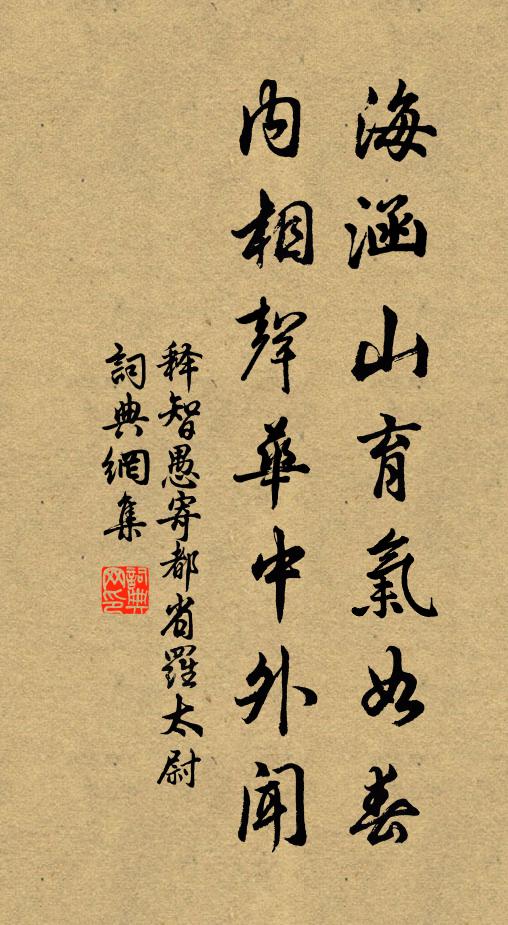 海涵山育氣如春
内相聲華中外闻
释智愚寄都省羅太尉
詞典網集
詞典网印